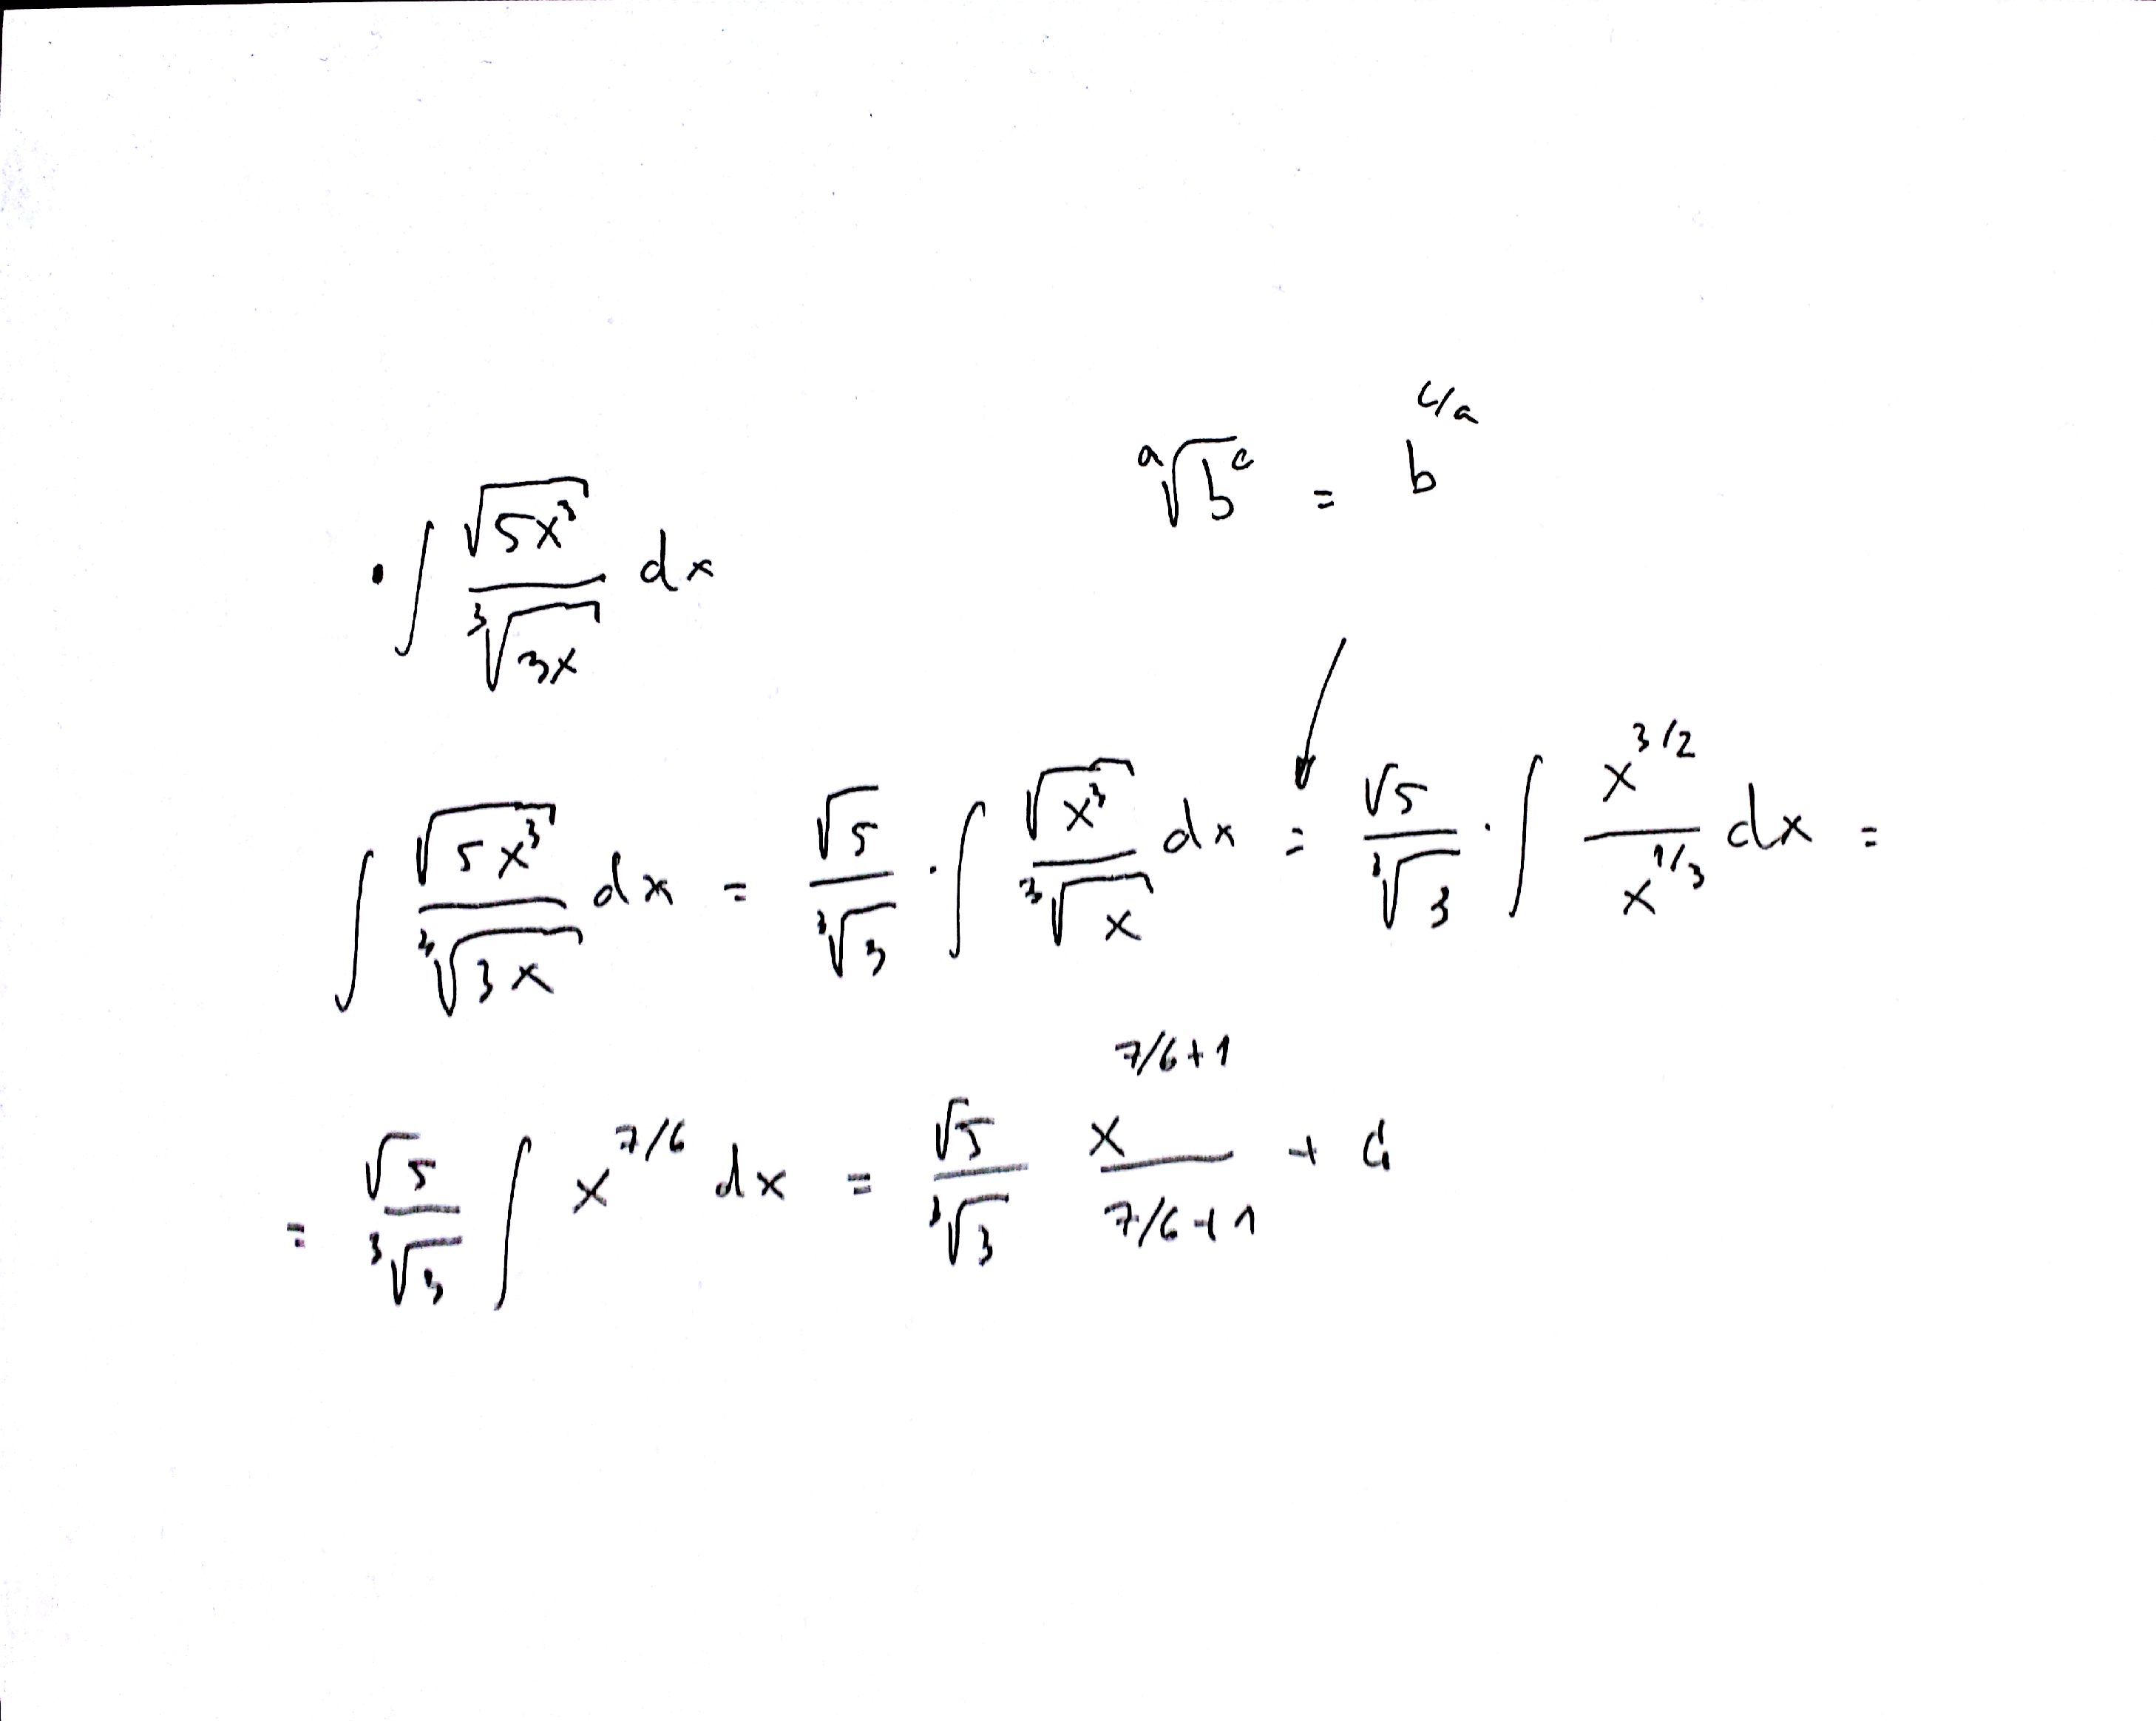 ᵃ√(bᶜ) = b^(c/a)
• ∫ √(5x³) / ³√(3x) dx
∫ √(5x³) / ³√(3x) dx = √5 / ³√3 · ∫ √(x³) / ³√x dx = √5 / ³√3 · ∫ x^(3/2) / x^(1/3) dx =
= √5 / ³√3 ∫ x^(7/6) dx = √5 / ³√3 x^(7/6+1) / (7/6+1) + C